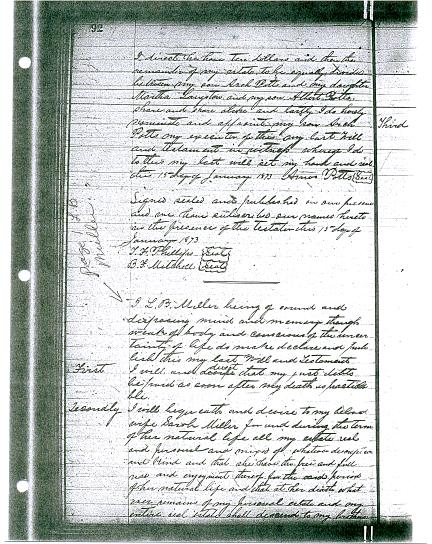 92
I direct her have ten dollars and then the
remainder of my estate to be equally divided
between my son Jack Potts and my daughter
Martha Langston and my son Albert Potts
share and share alike and lastly I do hereby
nominate and appoint my son Jack
Potts my executor of this my last will
Third
and testament in witness whereof I do
to this my last will set my hand and seal
this 15 day of January 1873 Amos Potts Seal
Signed sealed and published in our presence
and we have subscribed our names hereto
in the presence of the testator this 15 day of
January 1873
T. F. Phillips Seal
B. F. Mitchell Seal
L B
Miller
I L. B. Miller being of sound and
disposing mind and memory though
weak of body and conscious of the uncer
tainty of life do make declare and pub
lish this my last Will and Testament
First
I will and desire direct that my just debts
be paid as soon after my death as practica
ble.
Secondly
I will bequeath and devise to my belove
wife Sarah Miller for and during the term
of her natural life all my estate real
and personal and mixed of whatever description
and kind and that she have the free and full
use and enjoyment thereof for the said period
of her natural life and that at her death what
ever remains of my personal estate and my
entire real estate shall descend to my